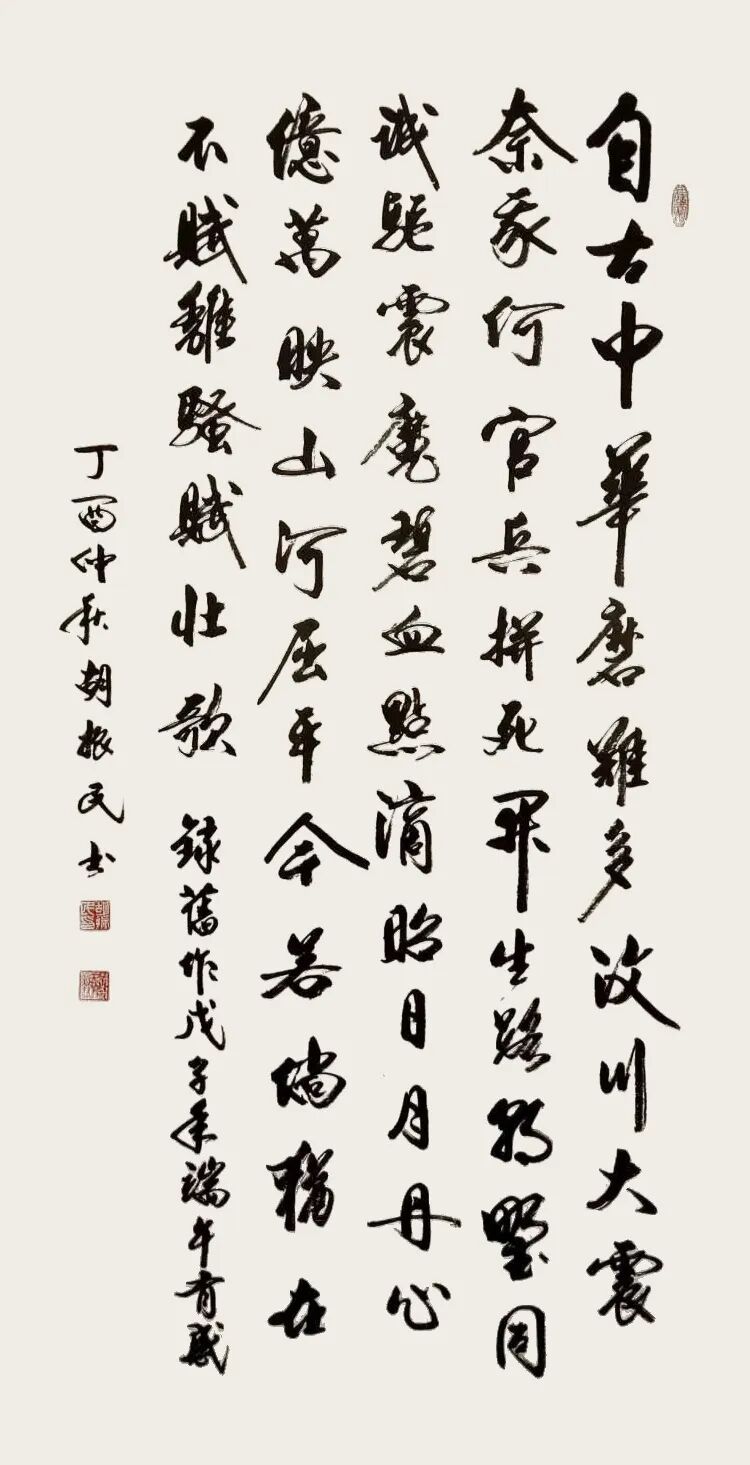 自古中華磨難多汶川大震
奈我何官兵拼死開生路朝野同
誠驅震魔碧血點滴昭日月丹心
億萬映山河屈平今若倘猶在
不賦離騷賦壯歌 錄舊作戊子年端午有感
丁酉仲秋胡振民書